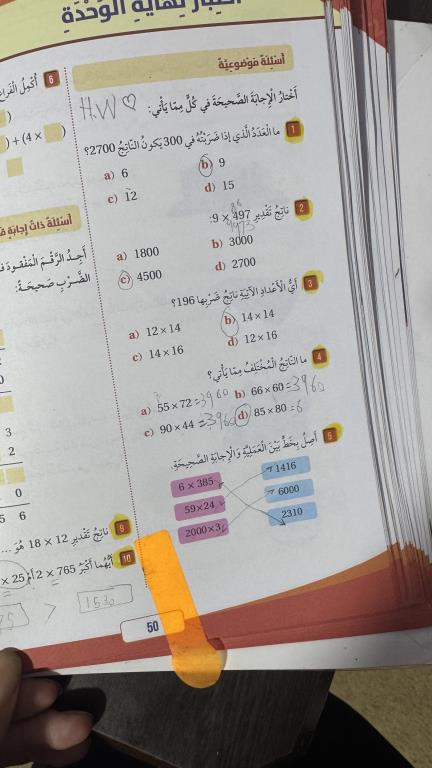 اخْتِبارُ نِهايَةِ الْوَحْدَةِ
أَسْئِلَةٌ مَوْضوعِيَّةٌ
أَخْتارُ الْإِجابَةَ الصَّحيحَةَ في كُلٍّ مِمّا يَأْتي:
H.W ♡
1 ما الْعَدَدُ الَّذي إِذا ضَرَبْتُهُ في 300 يَكونُ النّاتِجُ 2700؟
a) 6 b) 9
c) 12 d) 15
2 ناتِجُ تَقْديرِ 497 × 9:
a) 1800 b) 3000
c) 4500 d) 2700
3 أَيُّ الْأَعْدادِ الْآتِيَةِ ناتِجُ ضَرْبِها 196؟
a) 12 × 14 b) 14 × 14
c) 14 × 16 d) 12 × 16
4 ما النّاتِجُ الْمُخْتَلِفُ مِمّا يَأْتي؟
a) 55 × 72 = 3960 b) 66 × 60 = 3960
c) 90 × 44 = 3960 d) 85 × 80 = 6
5 أَصِلُ بِخَطٍّ بَيْنَ الْعَمَلِيَّةِ وَالْإِجابَةِ الصَّحيحَةِ.
6 × 385 1416
59×24 6000
2000×3 2310
6 أُكْمِلُ الْفَراغَ
) + (4 ×
أَسْئِلَةٌ ذاتُ إِجابَةٍ
أَجِدُ الرَّقْمَ الْمَفْقودَ
الضَّرْبِ صَحيحَةً:
0
3
2
0
5 6
9 ناتِجُ تَقْديرِ 12 × 18 هُوَ ...
10 أَيُّهُما أَكْبَرُ 765 × 2 أَمْ 25 ×
> 1530
50